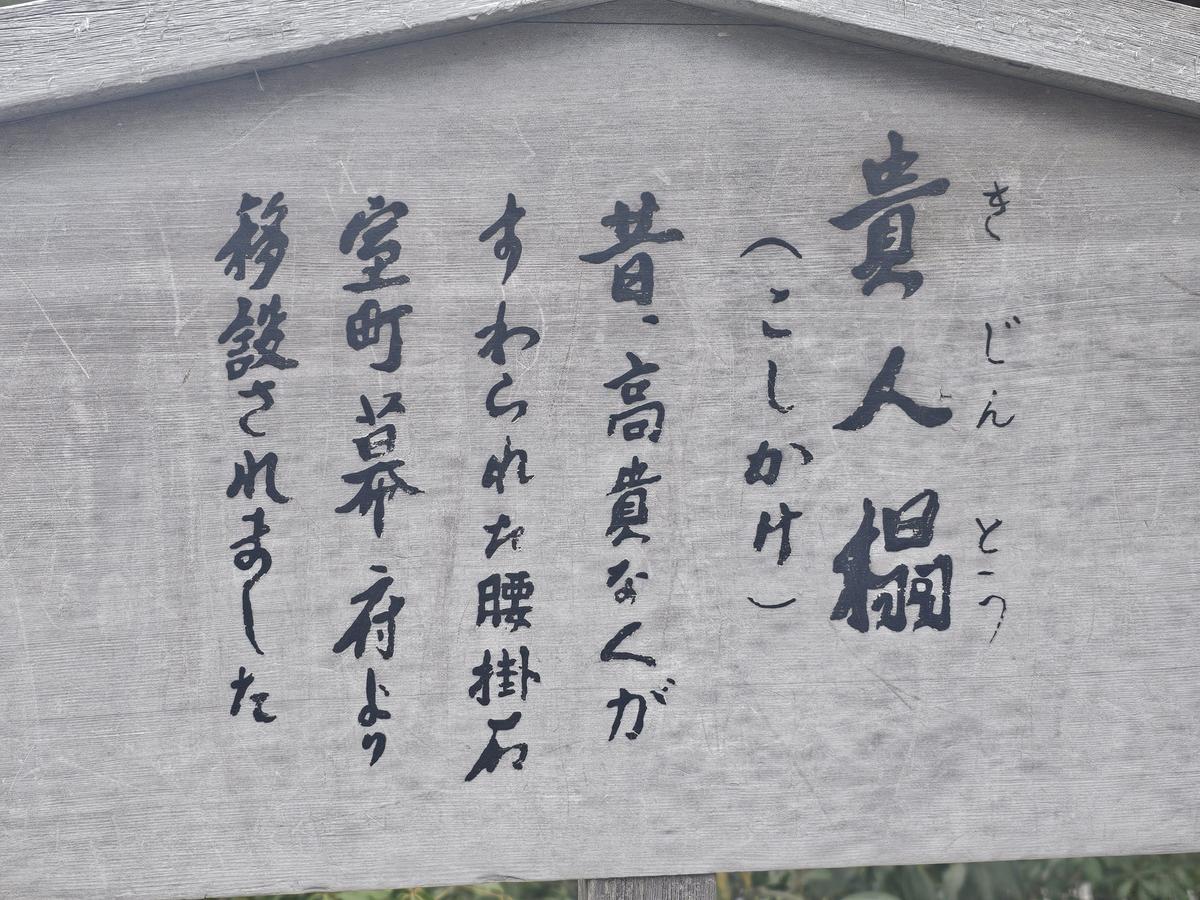 きじんとう
貴人榻
（こしかけ）
昔、高貴な人が
すわられた腰掛石
室町幕府より
移設されました